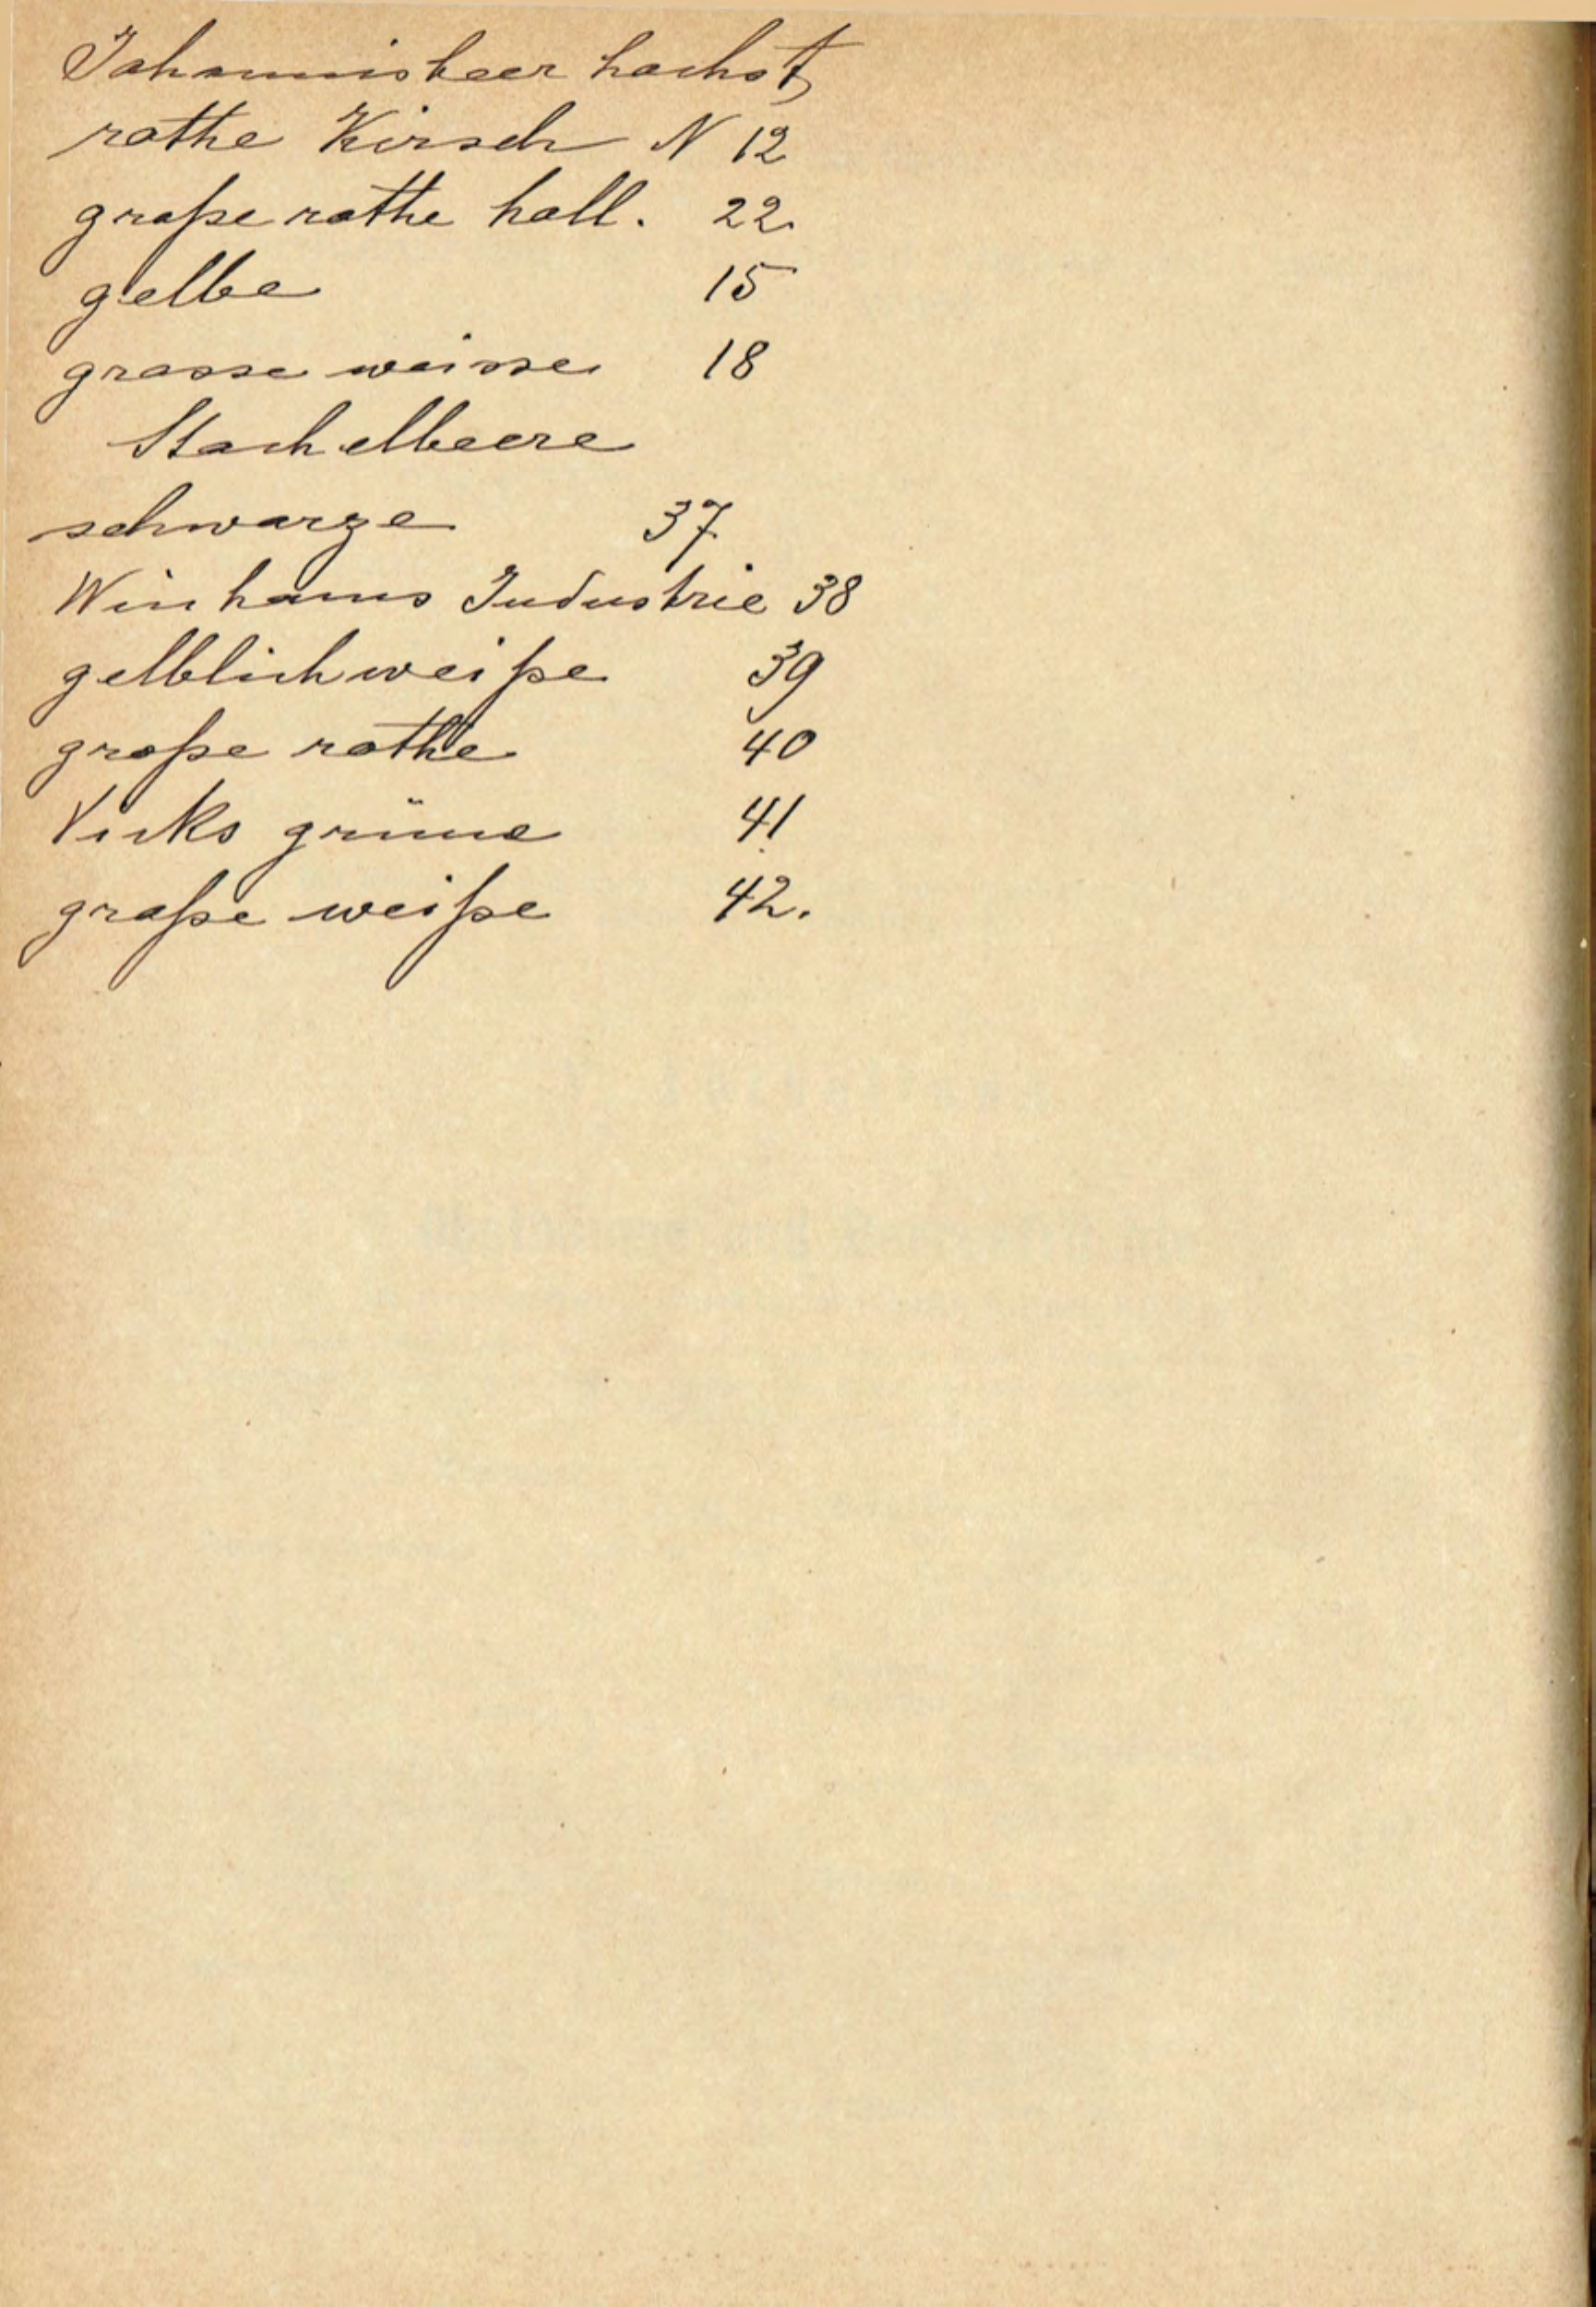 Johannisbeer hochst
rothe Kirsch N 12
große rothe holl. 22.
gelbe 15
grosse weisse 18
Stachelbeere
schwarze 37
Winhams Industrie 38
gelblichweiße 39
große rothe 40
Vicks grüne 41
große weiße 42.